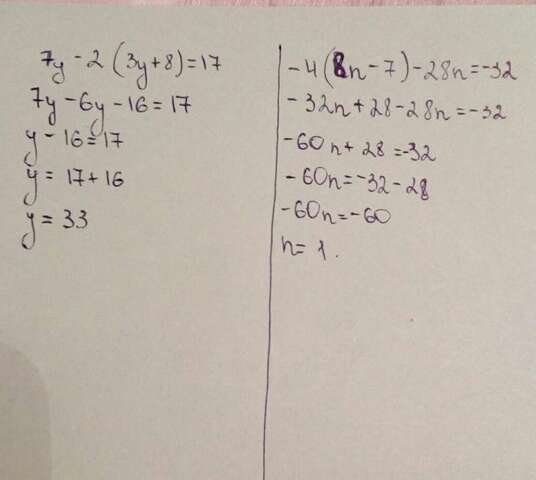 7y - 2 (3y+8) = 17
7y - 6y - 16 = 17
y - 16 = 17
y = 17 + 16
y = 33
-4(8n - 7) - 28n = -32
-32n + 28 - 28n = -32
-60n + 28 = -32
-60n = -32 - 28
-60n = -60
n = 1.